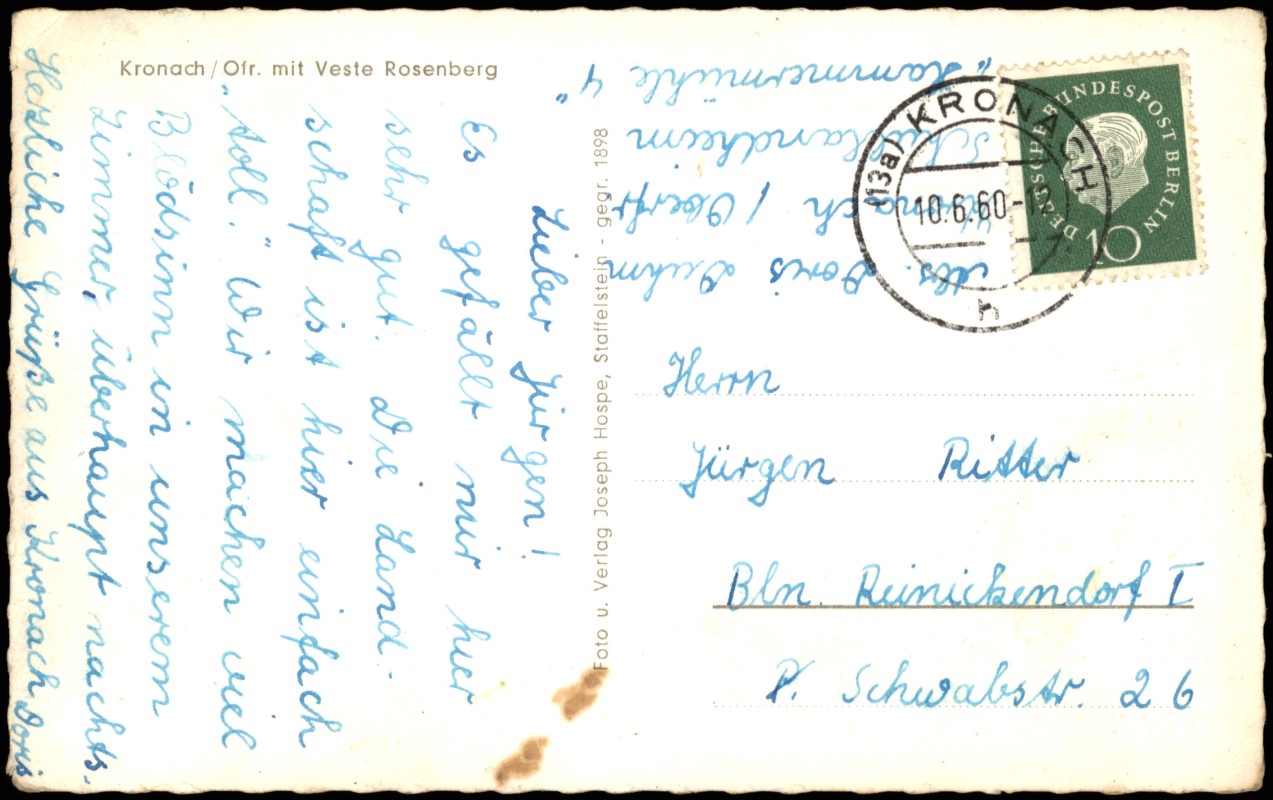 Kronach/Ofr. mit Veste Rosenberg
Lieber Jürgen!
Es gefällt mir hier
sehr gut. Die Land-
schaft ist hier einfach
„toll." Wir machen viel
Blödsinn in unserem
Zimmer, überhaupt nachts.
Herzliche Grüße aus Kronach Doris
Foto u. Verlag Joseph Hospe, Staffelstein - gegr. 1898
Abs. Doris
Kronach / Oberfr
Schullandheim
„Hammermühle 4"
(13a) KRONACH
10.6.60-12
h
DEUTSCHE BUNDESPOST BERLIN
10
Herrn
Jürgen Ritter
Bln. Reinickendorf I
P. Schwabstr. 26